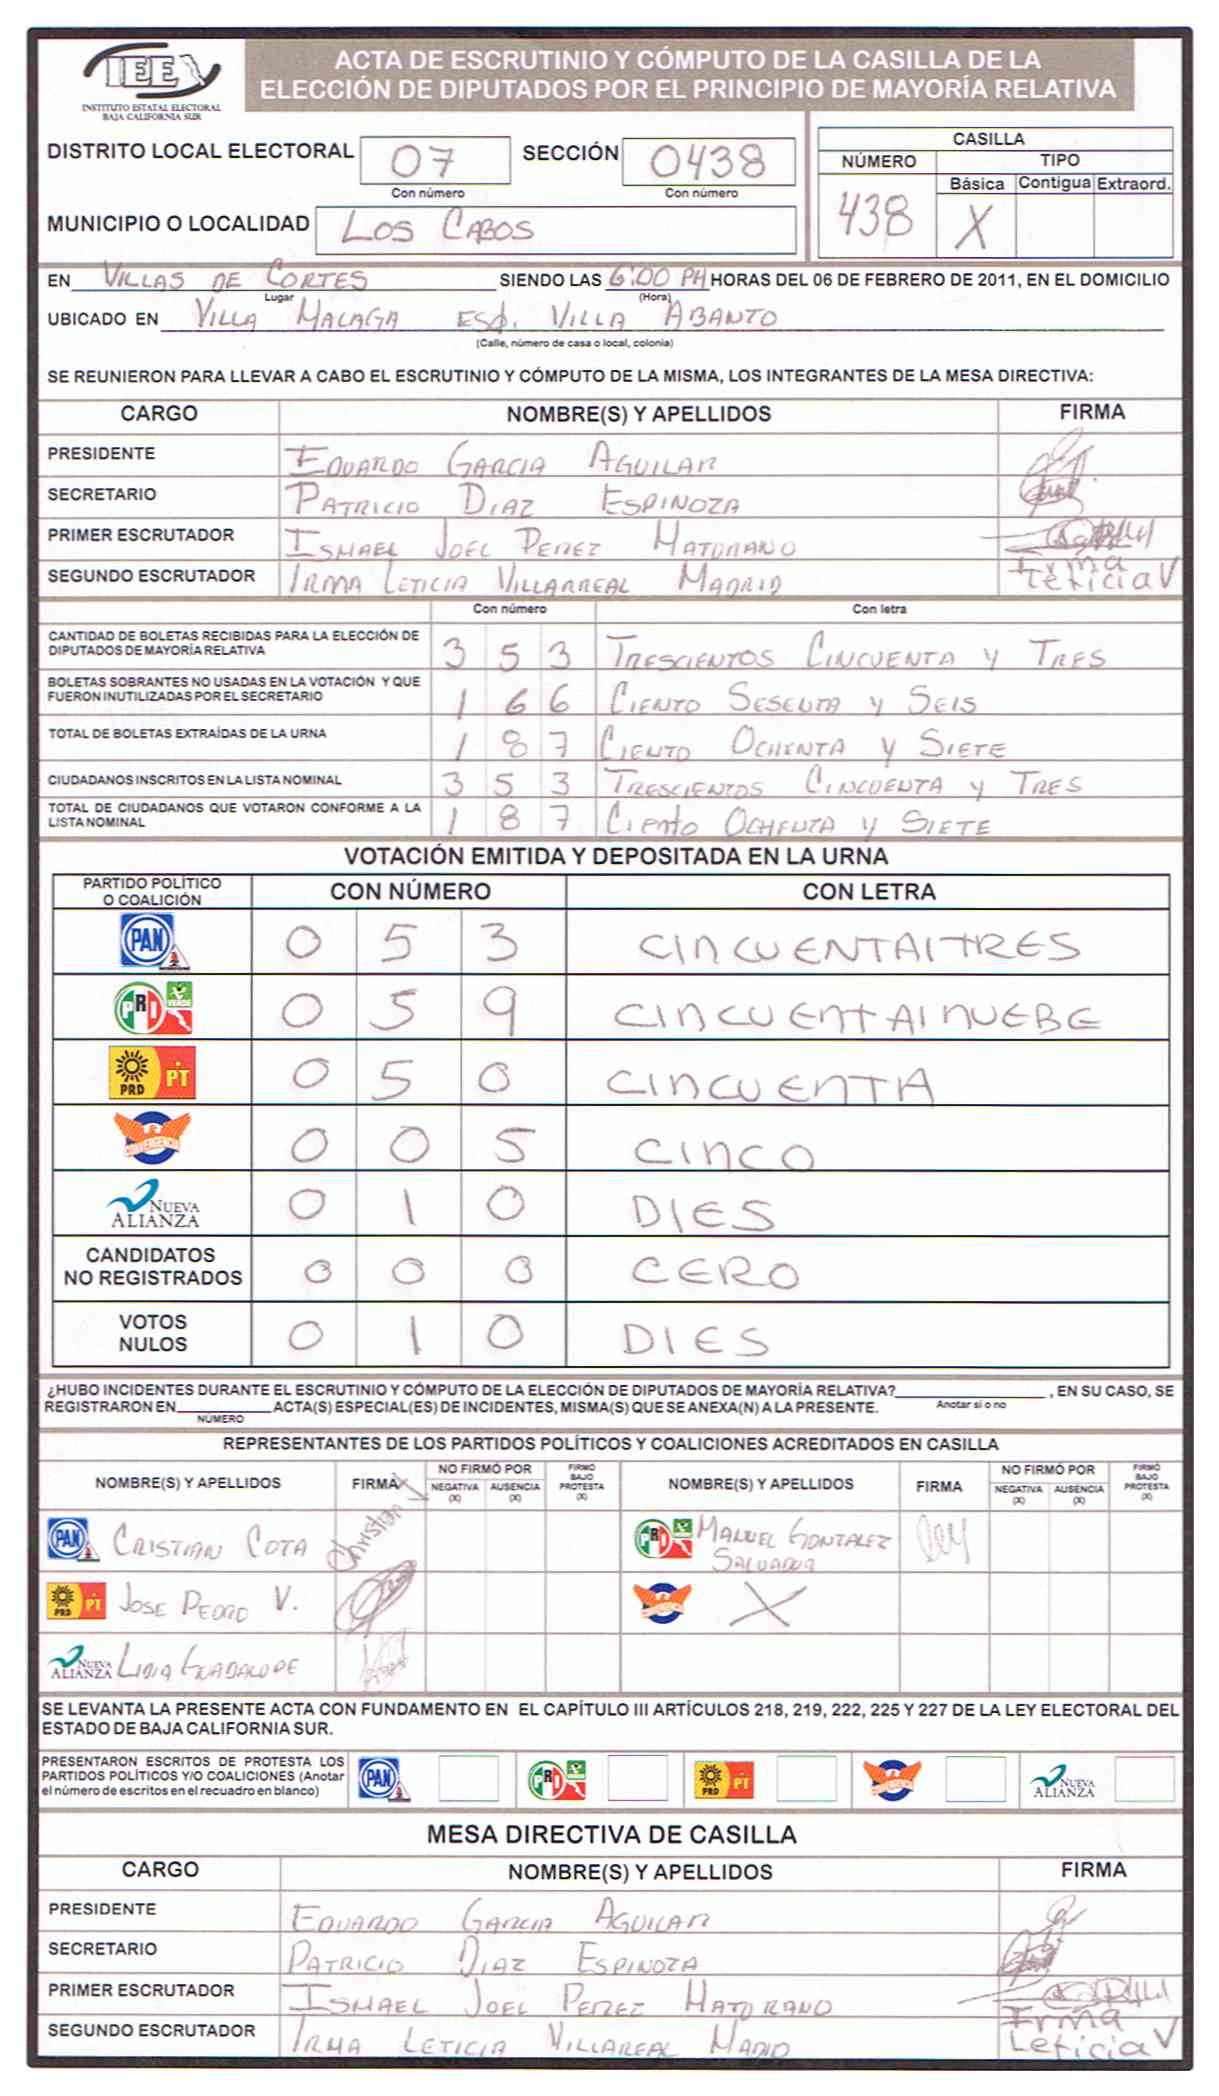 IEE
INSTITUTO ESTATAL ELECTORAL
BAJA CALIFORNIA SUR
ACTA DE ESCRUTINIO Y CÓMPUTO DE LA CASILLA DE LA
ELECCIÓN DE DIPUTADOS POR EL PRINCIPIO DE MAYORÍA RELATIVA
DISTRITO LOCAL ELECTORAL 07 SECCIÓN 0438
Con número Con número
MUNICIPIO O LOCALIDAD LOS CABOS
CASILLA
NÚMERO TIPO
Básica Contigua Extraord.
438 X
EN VILLAS DE CORTES SIENDO LAS 6:00 PM HORAS DEL 06 DE FEBRERO DE 2011, EN EL DOMICILIO
Lugar (Hora)
UBICADO EN VILLA MALAGA ESQ. VILLA ABANTO
(Calle, número de casa o local, colonia)
SE REUNIERON PARA LLEVAR A CABO EL ESCRUTINIO Y CÓMPUTO DE LA MISMA, LOS INTEGRANTES DE LA MESA DIRECTIVA:
CARGO NOMBRE(S) Y APELLIDOS FIRMA
PRESIDENTE EDUARDO GARCIA AGUILAR
SECRETARIO PATRICIO DIAZ ESPINOZA
PRIMER ESCRUTADOR ISMAEL JOEL PEREZ MATORANO
SEGUNDO ESCRUTADOR IRMA LETICIA VILLARREAL MADRID Irma Leticia V
Con número Con letra
CANTIDAD DE BOLETAS RECIBIDAS PARA LA ELECCIÓN DE
DIPUTADOS DE MAYORÍA RELATIVA 3 5 3 TRESCIENTOS CINCUENTA Y TRES
BOLETAS SOBRANTES NO USADAS EN LA VOTACIÓN Y QUE
FUERON INUTILIZADAS POR EL SECRETARIO 1 6 6 CIENTO SESENTA Y SEIS
TOTAL DE BOLETAS EXTRAÍDAS DE LA URNA 1 8 7 CIENTO OCHENTA Y SIETE
CIUDADANOS INSCRITOS EN LA LISTA NOMINAL 3 5 3 TRESCIENTOS CINCUENTA Y TRES
TOTAL DE CIUDADANOS QUE VOTARON CONFORME A LA
LISTA NOMINAL 1 8 7 CIENTO OCHENTA Y SIETE
VOTACIÓN EMITIDA Y DEPOSITADA EN LA URNA
PARTIDO POLÍTICO
O COALICIÓN CON NÚMERO CON LETRA
PAN 0 5 3 CINCUENTAITRES
PRI VERDE 0 5 9 CINCUENTAINUEBE
PRD PT 0 5 0 CINCUENTA
CONVERGENCIA 0 0 5 CINCO
NUEVA ALIANZA 0 1 0 DIES
CANDIDATOS
NO REGISTRADOS 0 0 0 CERO
VOTOS
NULOS 0 1 0 DIES
¿HUBO INCIDENTES DURANTE EL ESCRUTINIO Y CÓMPUTO DE LA ELECCIÓN DE DIPUTADOS DE MAYORÍA RELATIVA? , EN SU CASO, SE
Anotar si o no
REGISTRARON EN ACTA(S) ESPECIAL(ES) DE INCIDENTES, MISMA(S) QUE SE ANEXA(N) A LA PRESENTE.
NÚMERO
REPRESENTANTES DE LOS PARTIDOS POLÍTICOS Y COALICIONES ACREDITADOS EN CASILLA
NOMBRE(S) Y APELLIDOS FIRMA NO FIRMÓ POR NEGATIVA (X) AUSENCIA (X) FIRMÓ BAJO PROTESTA (X) NOMBRE(S) Y APELLIDOS FIRMA NO FIRMÓ POR NEGATIVA (X) AUSENCIA (X) FIRMÓ BAJO PROTESTA (X)
PAN CRISTIAN COTA Christian PRI VERDE MANUEL GONZALEZ
SALVADOR
PRD PT JOSE PEDRO V. CONVERGENCIA X
NUEVA ALIANZA LIDIA GUADALUPE
SE LEVANTA LA PRESENTE ACTA CON FUNDAMENTO EN EL CAPÍTULO III ARTÍCULOS 218, 219, 222, 225 Y 227 DE LA LEY ELECTORAL DEL
ESTADO DE BAJA CALIFORNIA SUR.
PRESENTARON ESCRITOS DE PROTESTA LOS
PARTIDOS POLÍTICOS Y/O COALICIONES (Anotar
el número de escritos en el recuadro en blanco)
PAN PRI VERDE PRD PT CONVERGENCIA NUEVA ALIANZA
MESA DIRECTIVA DE CASILLA
CARGO NOMBRE(S) Y APELLIDOS FIRMA
PRESIDENTE EDUARDO GARCIA AGUILAR
SECRETARIO PATRICIO DIAZ ESPINOZA
PRIMER ESCRUTADOR ISMAEL JOEL PEREZ MATORANO
SEGUNDO ESCRUTADOR IRMA LETICIA VILLAREAL MADID Irma Leticia V